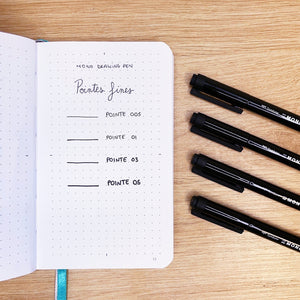 MONO DRAWING PEN
Pointes fines
POINTE 005
POINTE 01
POINTE 03
POINTE 05
MONO
MONO
MONO
MONO